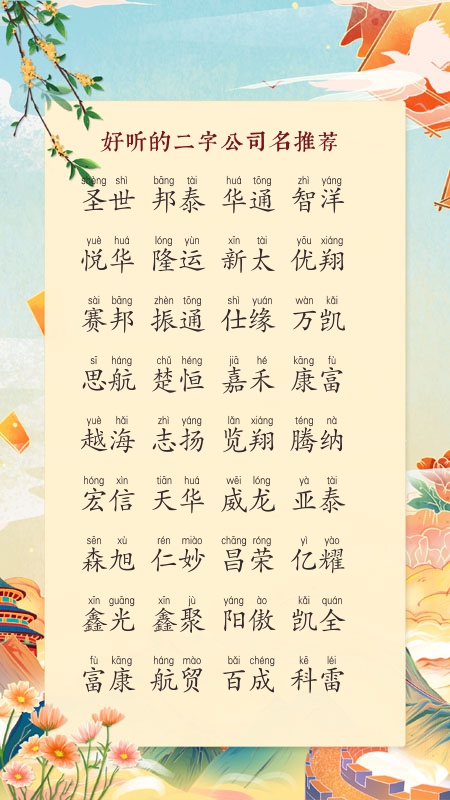 好听的二字公司名推荐
shèng shì bāng tài huá tōng zhì yáng
圣世 邦泰 华通 智洋
yuè huá lóng yùn xīn tài yōu xiáng
悦华 隆运 新太 优翔
sài bāng zhèn tōng shì yuán wàn kǎi
赛邦 振通 仕缘 万凯
sī háng chǔ héng jiā hé kāng fù
思航 楚恒 嘉禾 康富
yuè hǎi zhì yáng lǎn xiáng téng nà
越海 志扬 览翔 腾纳
hóng xìn tiān huá wēi lóng yà tài
宏信 天华 威龙 亚泰
sēn xù rén miào chāng róng yì yào
森旭 仁妙 昌荣 亿耀
xīn guāng xīn jù yáng ào kǎi quán
鑫光 鑫聚 阳傲 凯全
fù kāng háng mào bǎi chéng kē léi
富康 航贸 百成 科雷